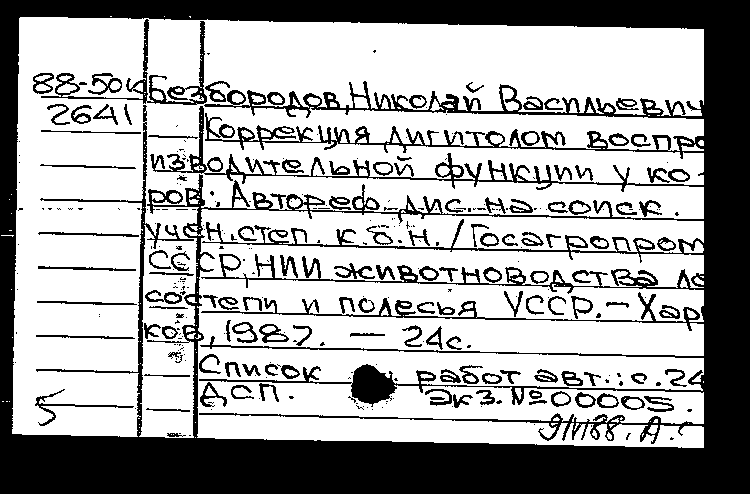 88-50к Безбородов, Николай Васильевич
2641 Коррекция дигитолом воспро
изводительной функции у ко-
ров: Автореф. дис. на соиск.
учен. степ. к.б.н. / Госагропром
СССР, НИИ животноводства ле
состепи и полесья УССР. – Харь
ков, 1987. – 24с.
Список работ авт.: с.24
ДСП. Экз. №00005.
5